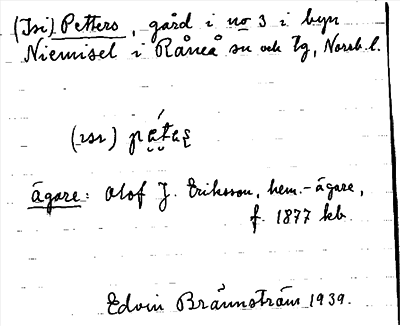 (Isi) Petters, gård i no 3 i byn
Niemisel i Råneå sn och tg, Norrb. l.
(ɪsɪ)
ägare: Olof J. Eriksson, hem.-ägare,
f. 1877 kb.
Edvin Brännström 1939.